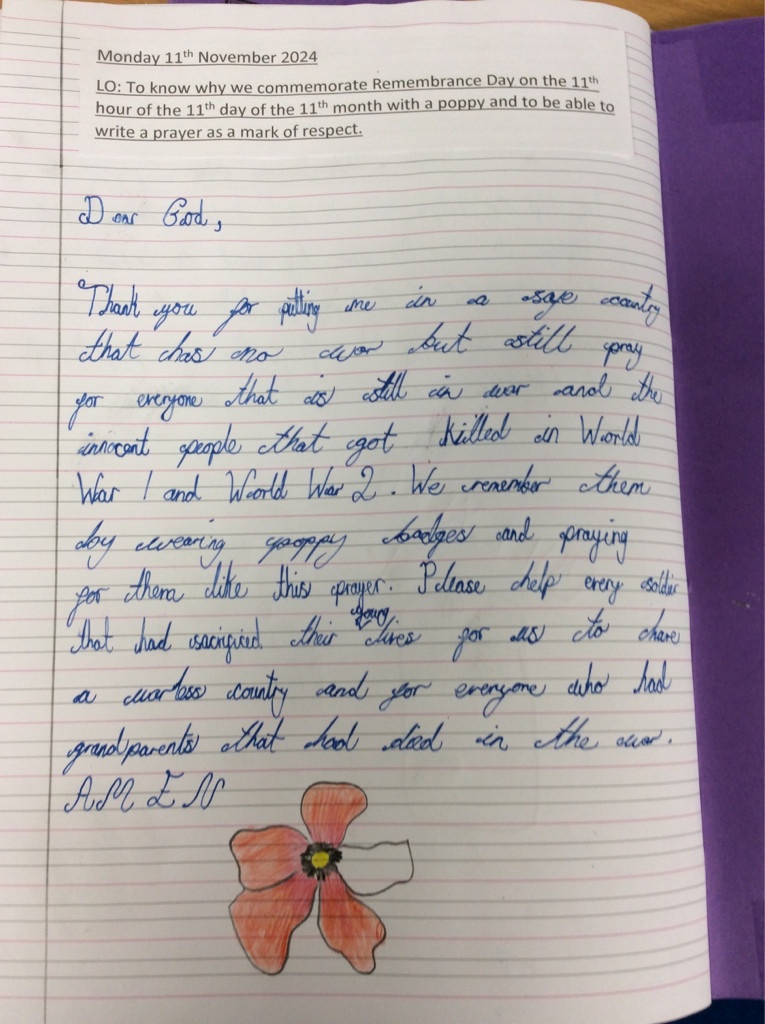 Monday 11th November 2024
LO: To know why we commemorate Remembrance Day on the 11th
hour of the 11th day of the 11th month with a poppy and to be able to
write a prayer as a mark of respect.
Dear God,
Thank you for putting me in a safe country
that has no war but still pray
for everyone that is still in war and the
innocent people that got killed in World
War 1 and World War 2. We remember them
by wearing poppy badges and praying
for them like this prayer. Please help every soldier
that had sacrificed their young lives for us to have
a warless country and for everyone who had
grandparents that had died in the war.
AMEN